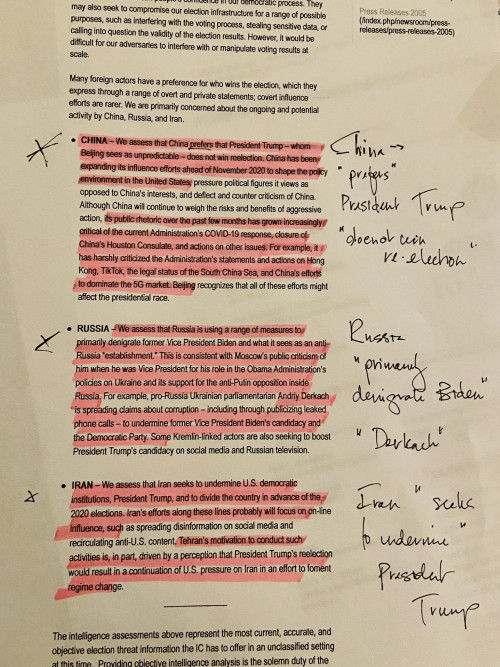 may also seek to compromise our election infrastructure for a range of possible
purposes, such as interfering with the voting process, stealing sensitive data, or
calling into question the validity of the election results. However, it would be
difficult for our adversaries to interfere with or manipulate voting results at
scale.
Press Releases 2005
(/index.php/newsroom/press-
releases/press-releases-2005)
Many foreign actors have a preference for who wins the election, which they
express through a range of overt and private statements; covert influence
efforts are rarer. We are primarily concerned about the ongoing and potential
activity by China, Russia, and Iran.
• CHINA – We assess that China prefers that President Trump – whom
Beijing sees as unpredictable – does not win reelection. China has been
expanding its influence efforts ahead of November 2020 to shape the policy
environment in the United States, pressure political figures it views as
opposed to China's interests, and deflect and counter criticism of China.
Although China will continue to weigh the risks and benefits of aggressive
action, its public rhetoric over the past few months has grown increasingly
critical of the current Administration's COVID-19 response, closure of
China's Houston Consulate, and actions on other issues. For example, it
has harshly criticized the Administration's statements and actions on Hong
Kong, TikTok, the legal status of the South China Sea, and China's efforts
to dominate the 5G market. Beijing recognizes that all of these efforts might
affect the presidential race.
China →
"prefers"
President Trump
"doesnot win
re-election"
• RUSSIA – We assess that Russia is using a range of measures to
primarily denigrate former Vice President Biden and what it sees as an anti-
Russia "establishment." This is consistent with Moscow's public criticism of
him when he was Vice President for his role in the Obama Administration's
policies on Ukraine and its support for the anti-Putin opposition inside
Russia. For example, pro-Russia Ukrainian parliamentarian Andriy Derkach
is spreading claims about corruption – including through publicizing leaked
phone calls – to undermine former Vice President Biden's candidacy and
the Democratic Party. Some Kremlin-linked actors are also seeking to boost
President Trump's candidacy on social media and Russian television.
Russia
"primarily
denigrate Biden"
"Derkach"
• IRAN – We assess that Iran seeks to undermine U.S. democratic
institutions, President Trump, and to divide the country in advance of the
2020 elections. Iran's efforts along these lines probably will focus on on-line
influence, such as spreading disinformation on social media and
recirculating anti-U.S. content. Tehran's motivation to conduct such
activities is, in part, driven by a perception that President Trump's reelection
would result in a continuation of U.S. pressure on Iran in an effort to foment
regime change.
Iran "seeks
to undermine"
President
Trump
The intelligence assessments above represent the most current, accurate, and
objective election threat information the IC has to offer in an unclassified setting
at this time. Providing objective intelligence analysis is the solemn duty of the